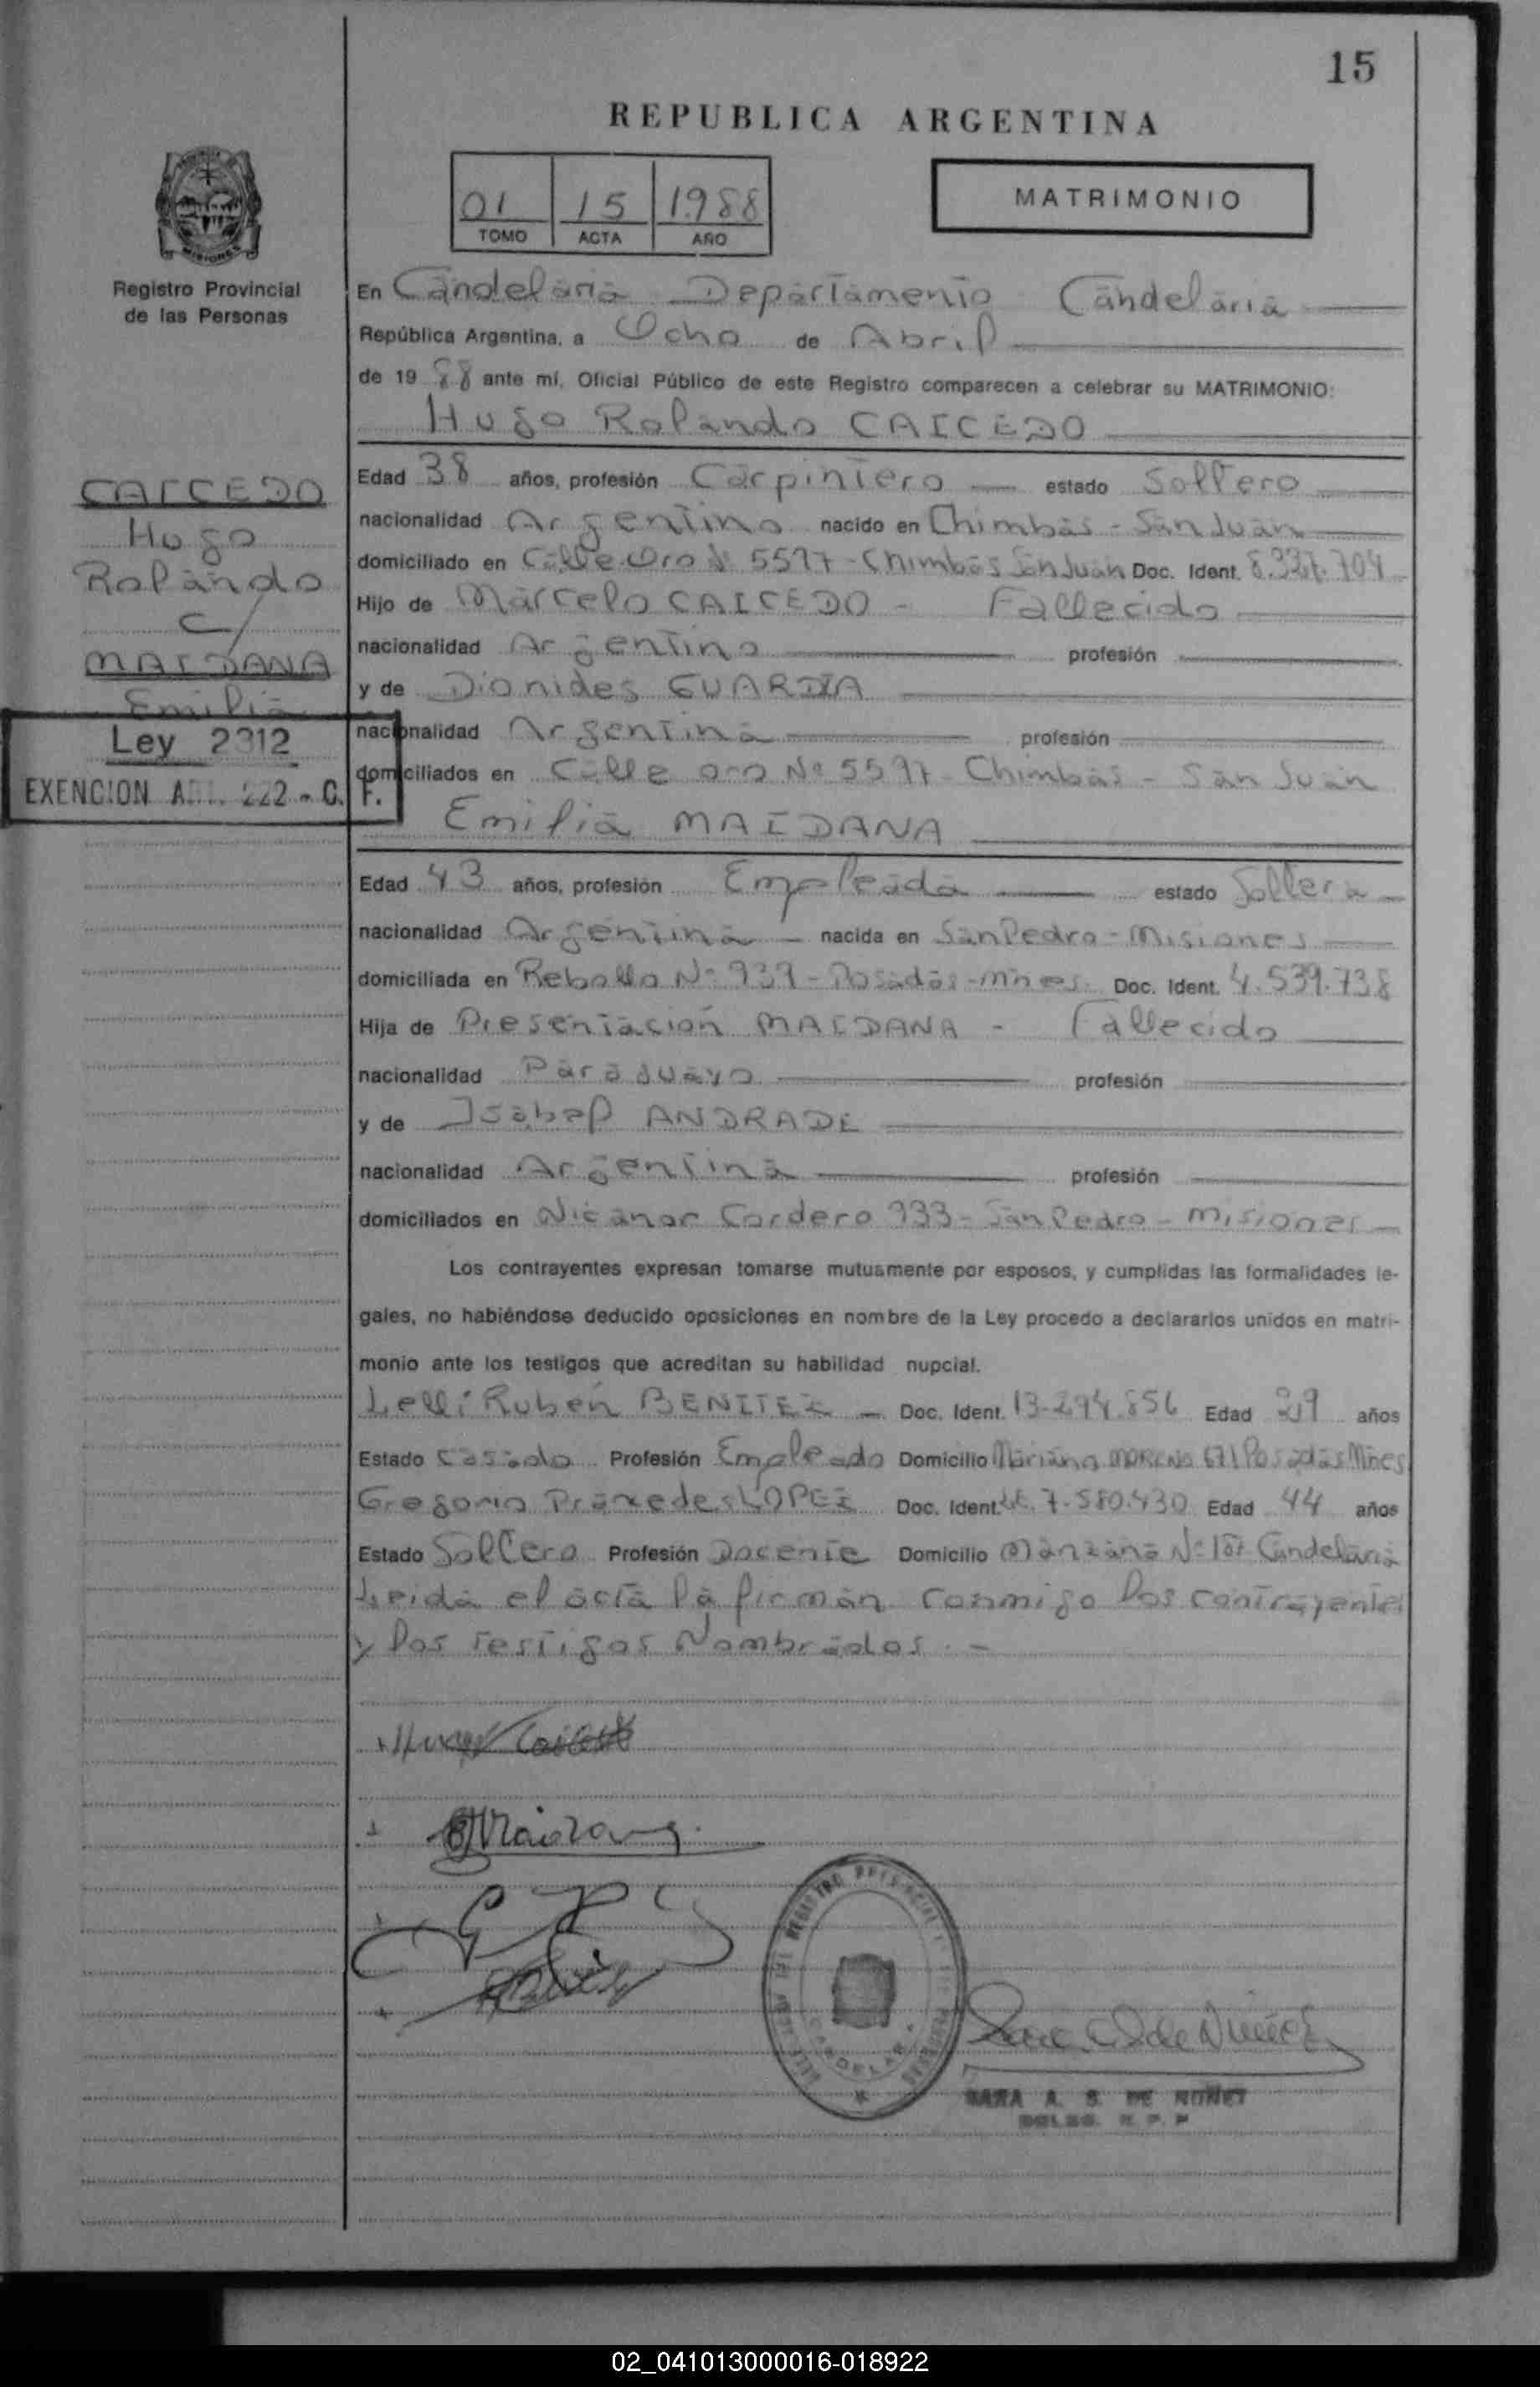 15
REPUBLICA ARGENTINA
01 15 1988
TOMO ACTA AÑO
MATRIMONIO
Registro Provincial
de las Personas
En Candelaria Departamento Candelaria
República Argentina, a Ocho de Abril
de 1988 ante mí, Oficial Público de este Registro comparecen a celebrar su MATRIMONIO:
Hugo Rolando CAICEDO
CAICEDO
Hugo
Rolando
c/
MAIDANA
Emilia
Ley 2312
EXENCION 222 - C. F.
Edad 38 años, profesión Carpintero estado Soltero
nacionalidad Argentino nacido en Chimbas - San Juan
domiciliado en Calle Oro Nº 5597 - Chimbas San Juan Doc. Ident. 8.327.704
Hijo de Marcelo CAICEDO - Fallecido
nacionalidad Argentino profesión
y de Dionides GUARDIA
nacionalidad Argentina profesión
domiciliados en Calle oro Nº 5597 - Chimbas - San Juan
Emilia MAIDANA
Edad 43 años, profesión Empleada estado Soltera
nacionalidad Argentina - nacida en San Pedro - Misiones
domiciliada en Rebollo Nº 939 - Posadas - Mnes. Doc. Ident. 4.539.738
Hija de Presentación MAIDANA - Fallecido
nacionalidad Paraguayo profesión
y de Isabel ANDRADE
nacionalidad Argentina profesión
domiciliados en Nicanor Cordero 933 - San Pedro - Misiones -
Los contrayentes expresan tomarse mutuamente por esposos, y cumplidas las formalidades le-
gales, no habiéndose deducido oposiciones en nombre de la Ley procedo a declararlos unidos en matri-
monio ante los testigos que acreditan su habilidad nupcial.
Lelli Rubén BENITEZ - Doc. Ident. 13.294.856 Edad 29 años
Estado Casado Profesión Empleado Domicilio Mariano MORENO 671 Posadas Mnes
Gregorio Praxedes LOPEZ Doc. Ident. LE. 7.580.430 Edad 44 años
Estado Soltero Profesión Docente Domicilio Manzana Nº Candelaria
Leida el acta la firman conmigo los contrayentes
y los testigos Nombrados. -
SARA A. S. DE NUÑEZ
DELEG. R. P. P
02_041013000016-018922